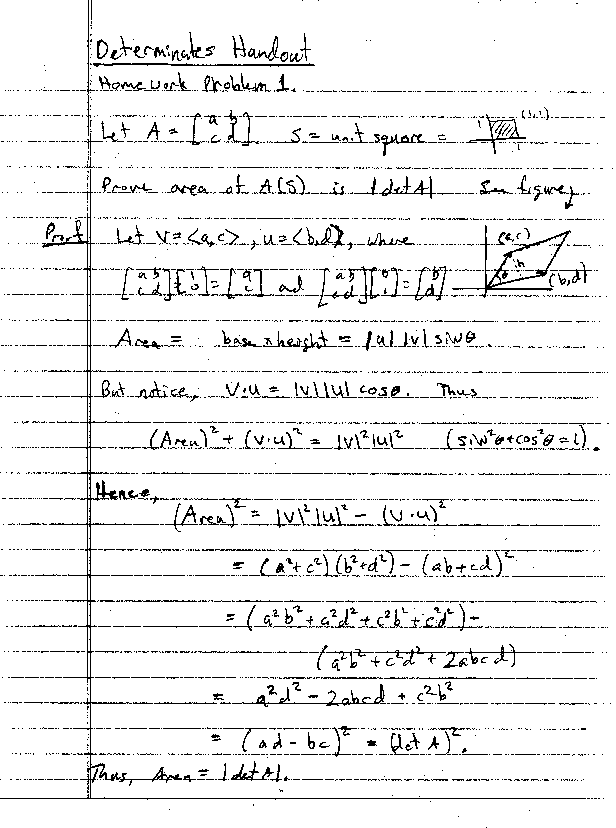 Determinates Handout
Homework Problem 1.
Let A = [a b; c d]. S = unit square = 1 1 (1,1)
Prove area of A(S) is |det A| See figure
Proof Let V = <a,c>, u = <b,d>, where (a,c)
[a b; c d][1; 0] = [a; c] and [a b; c d][0; 1] = [b; d] θ h (b,d)
Area = base × height = |u| |v| sin θ.
But notice, V·u = |v||u| cos θ. Thus
(Area)² + (V·u)² = |v|²|u|² (sin²θ + cos²θ = 1).
Hence,
(Area)² = |v|²|u|² - (v·u)²
= (a² + c²)(b² + d²) - (ab + cd)²
= (a²b² + a²d² + c²b² + c²d²) -
(a²b² + c²d² + 2abcd)
= a²d² - 2abcd + c²b²
= (ad - bc)² = (det A)².
Thus, Area = |det A|.